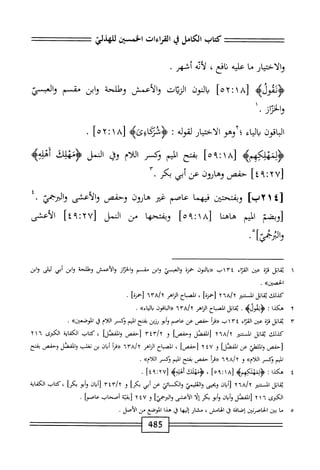 كتاب الكامل في القراءات الخمسين للهذليّ
والاختيار ما عليه نافع ، لأنّه أشهر .
﴿نَقُولُ﴾ [٥٢:١٨] بالنون الزيّات والأعمش وطلحة وابن مقسم والعبسيّ
والخزّاز . ١
الباقون بالياء ؛٢ وهو الاختيار لقوله : ﴿شُرَكَاءِيَ﴾ [٥٢:١٨] .
﴿لِمَهْلِكِهِم﴾ [٥٩:١٨] بفتح الميم وكسر اللام وفي النمل ﴿مَهْلِكَ أَهْلِهِ﴾
[٤٩:٢٧] حفص وهارون عن أبي بكر . ٣
[٢١٤ب] وبفتحتين فيهما عاصم غير هارون وحفص والأعشى والبرجميّ . ٤
[وبضمّ الميم هاهنا [٥٩:١٨] وبفتحها من النمل [٤٩:٢٧] الأعشى
والبُرجُميّ]٥.
١ يُقابَل قرّة عين القرّاء ١٣٤ب «بالنون حمزة والعبسيّ وابن مقسم والخزّاز والأعمش وطلحة وابن أبي ليلى وابن
الحصين» .
كذلك يُقابَل المستنير ٢٦٨/٢ [حمزة] ، المصباح الزاهر ٦٣٨/٢ [حمزة] .
٢ هكذا : ﴿يَقُولُ﴾ . يُقابَل المصباح الزاهر ٦٣٨/٢ «الباقون بالياء» .
٣ يُقابَل قرّة عين القرّاء ١٣٤ب «قرأ حفص عن عاصم وأبو رزين بفتح الميم وكسر اللام في الموضعين» .
كذلك يُقابَل المستنير ٢٦٨/٢ [المفضّل وحفص] و ٣٤٣/٢ [حفص والمفضّل] ، كتاب الكفاية الكبرى ٢١٦
[حفص والمفضّل] و ٢٤٧ [حفص] ، المصباح الزاهر ٦٣٨/٢ «قرأ أبان بن تغلب والمفضّل وحفص بفتح
الميم وكسر اللام» و ٦٩٨/٢ «قرأ حفص بفتح الميم وكسر اللام» .
٤ هكذا : ﴿لِمَهْلَكِهِم﴾ [٥٩:١٨] ، ﴿مَهْلَكَ أَهْلِهِ﴾ [٤٩:٢٧] .
يُقابَل المستنير ٢٦٨/٢ [أبان ويحيى والعُليميّ والكسائيّ عن أبي بكر] و ٣٤٣/٢ [أبان وأبو بكر] ، كتاب الكفاية
الكبرى ٢١٦ [المفضّل وأبان وأبو بكر إلّا الأعشى والبرجميّ] و ٢٤٧ [بقيّة أصحاب عاصم] .
٥ ما بين الحاصرتين إضافة في الهامش ، مشار إليها في هذا الموضع من الأصل .
485